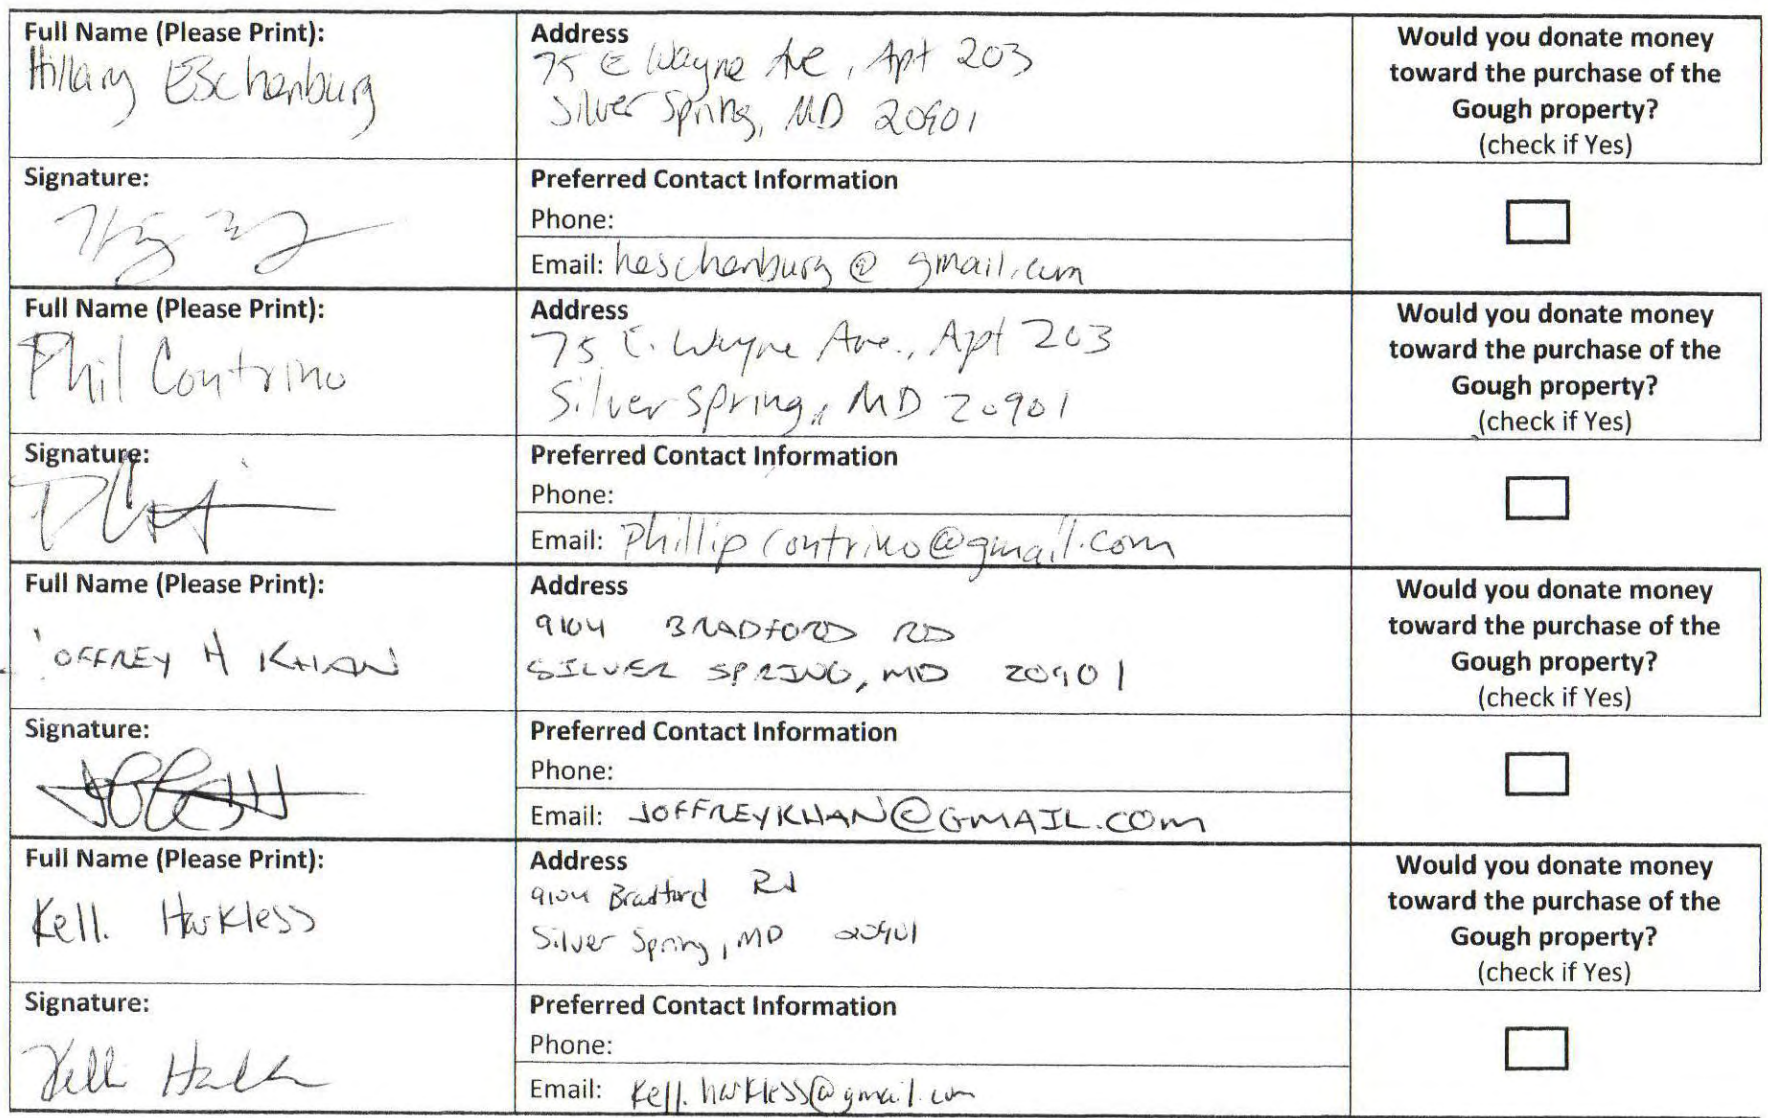 Full Name (Please Print):
Hillary Eschenburg
Address
75 E Wayne Ave, Apt 203
Silver Spring, MD 20901
Would you donate money
toward the purchase of the
Gough property?
(check if Yes)
Signature:
Preferred Contact Information
Phone:
Email: heschenburg@gmail.com
Full Name (Please Print):
Phil Contrino
Address
75 E. Wayne Ave., Apt 203
Silver Spring, MD 20901
Would you donate money
toward the purchase of the
Gough property?
(check if Yes)
Signature:
Preferred Contact Information
Phone:
Email: Phillipcontrino@gmail.com
Full Name (Please Print):
JOFFREY H KHAN
Address
9104 BRADFORD RD
SILVER SPRING, MD 20901
Would you donate money
toward the purchase of the
Gough property?
(check if Yes)
Signature:
Preferred Contact Information
Phone:
Email: JOFFREYKHAN@GMAIL.COM
Full Name (Please Print):
Kelli Harkless
Address
9104 Bradford Rd
Silver Spring, MD 20901
Would you donate money
toward the purchase of the
Gough property?
(check if Yes)
Signature:
Preferred Contact Information
Phone:
Email: kelli.harkless@gmail.com